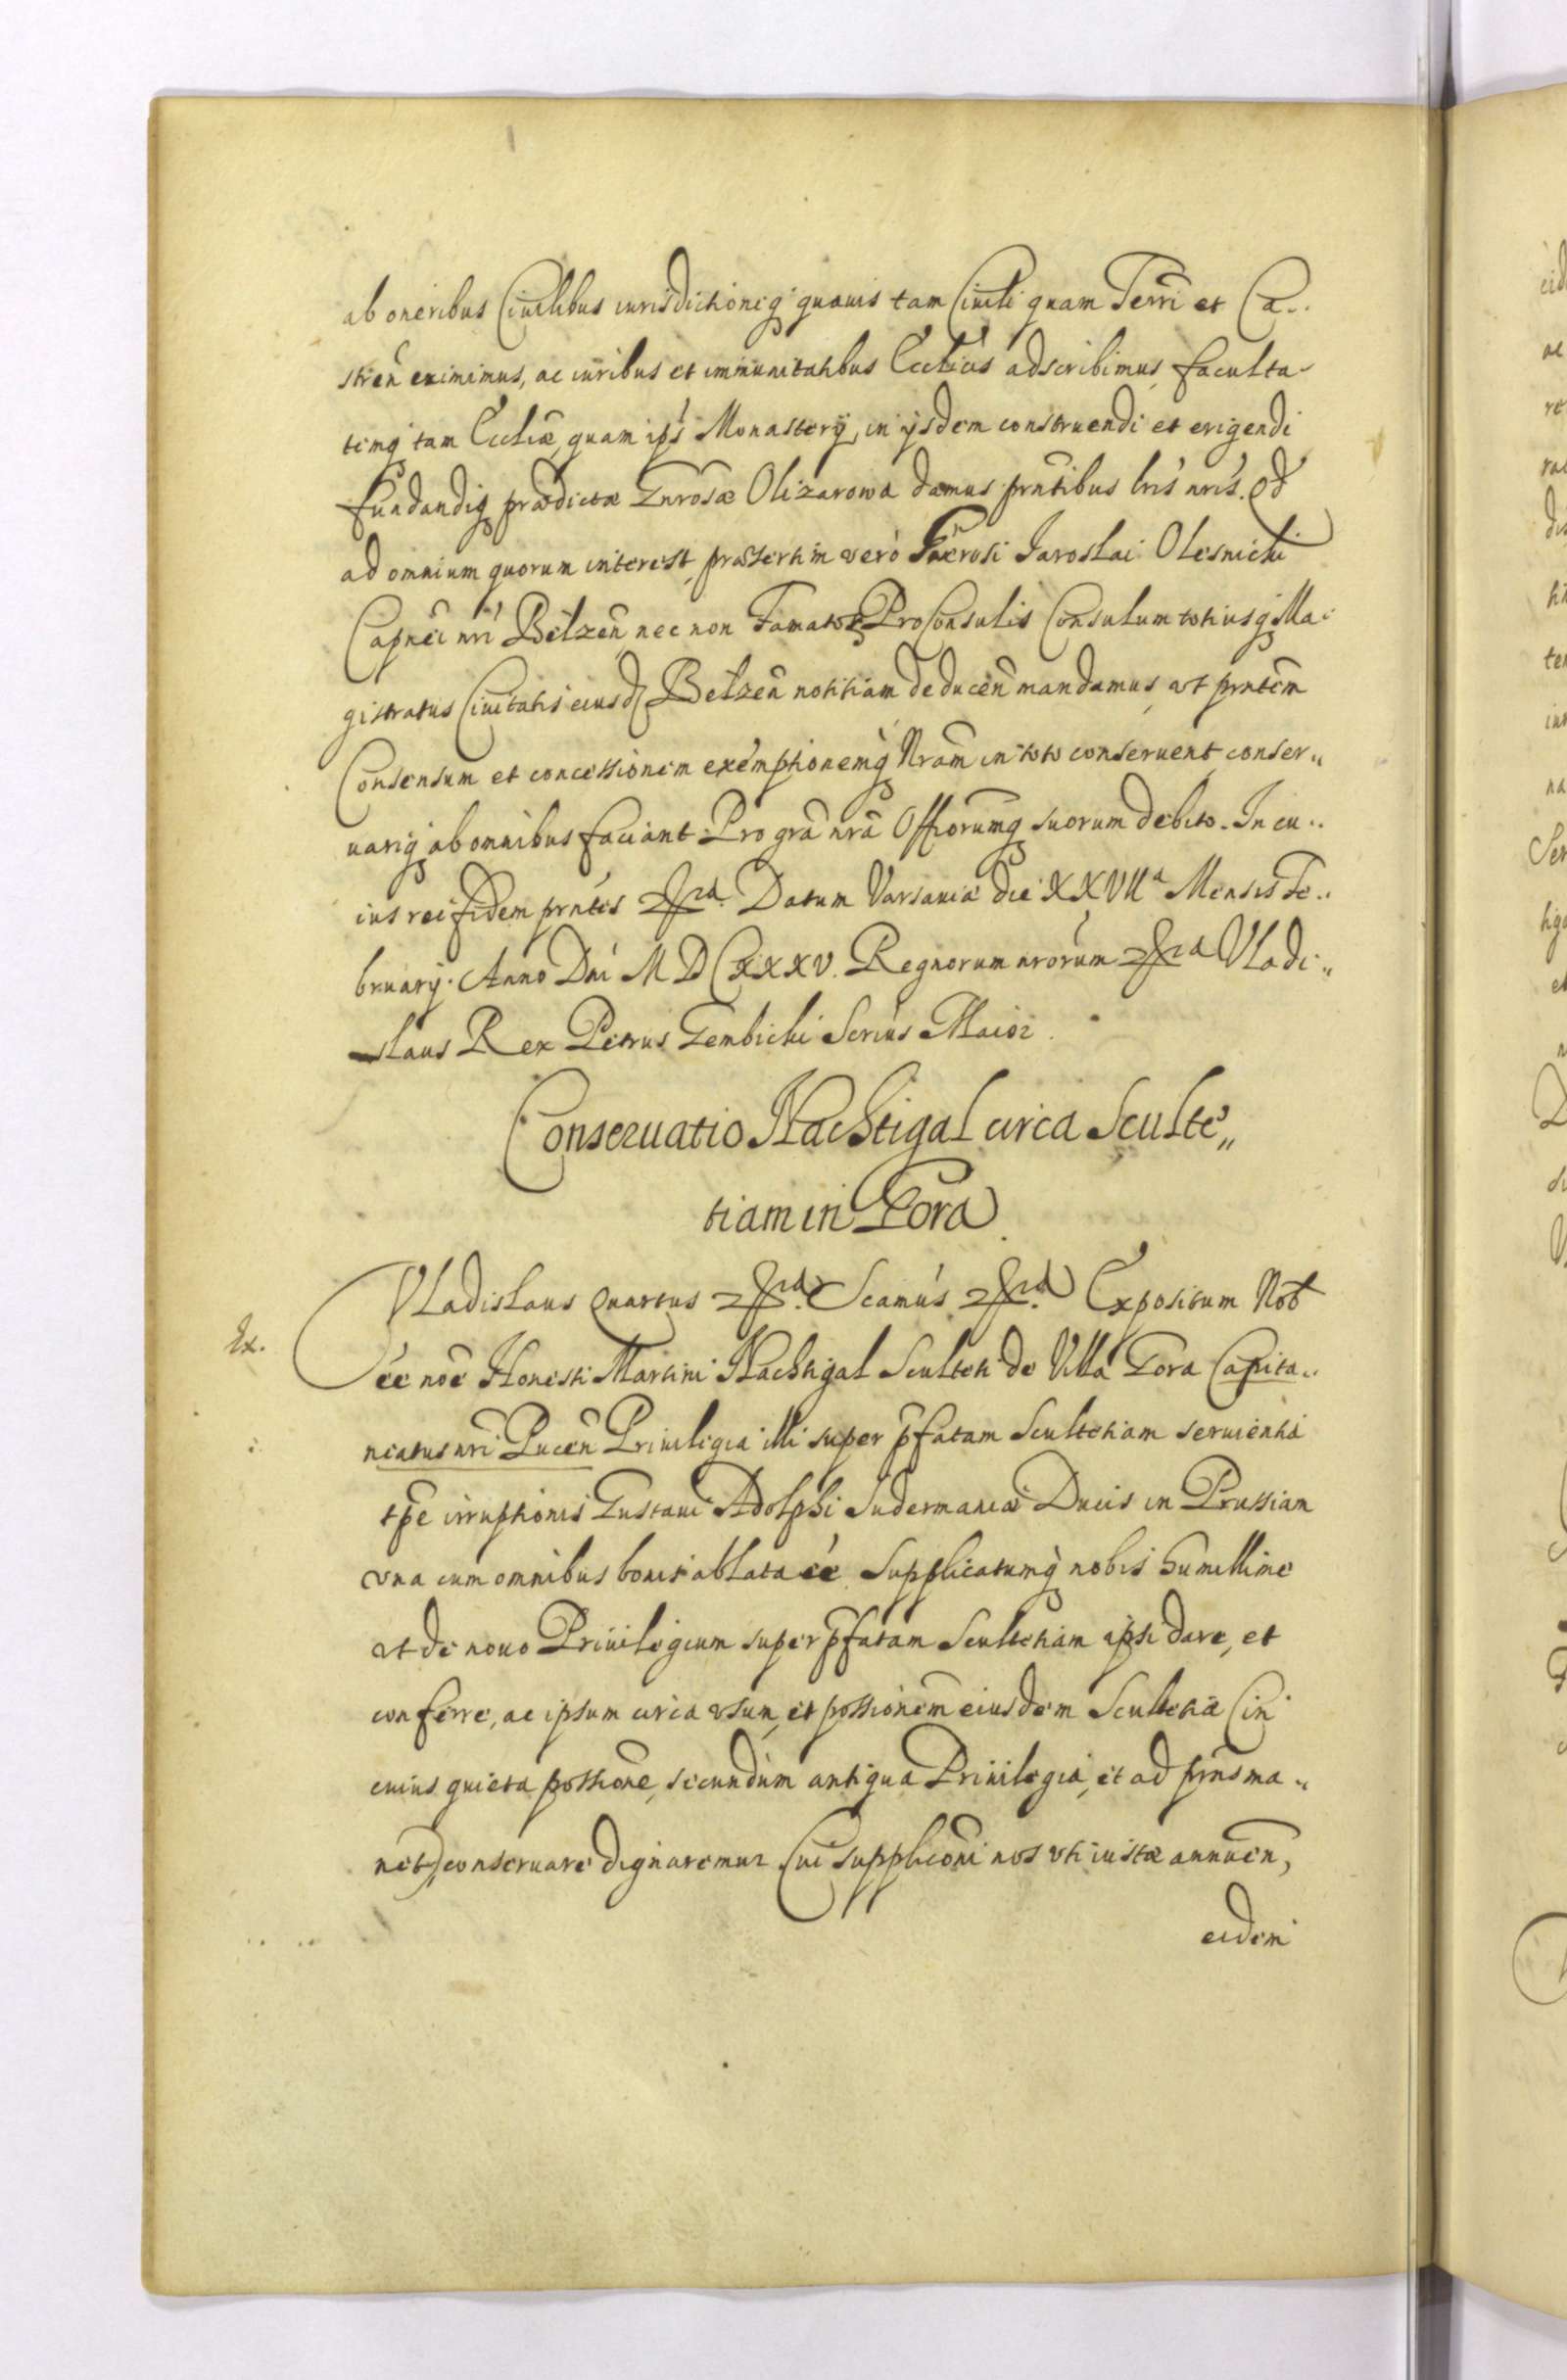 ab oneribus Ciuilibus iurisdictioneq quauis tam Ciuili quam Terri et Ca..
stren̄ eximimus, ac iuribus et immunitatibus Ecclicis adscribimus, faculta-
temq tam Eccliæ, quam ipsi Monasterÿ, in ÿsdem construendi et erigendi
fundandiq prædictæ Gnrosæ Olizarowa damus prntibus lris nris. Qd
ad omnium quorum interest, præsertim verò Generosi Iaroslai Olesnicki
Capnei nri Belzen̄ nec non Famator ProConsulis Consulum totiusq Ma:
gistratus Ciuitatis eiusd Belzen̄ notitiam deducen̄ mandamus, vt prntem
Consensum et concessionem exemptionemq Nram in toto conseruent, conser„
uariq ab omnibus faciant. Pro gra nra Offiorumq suorum debito. In cu..
ius rei fidem prntes Datum Varsauiæ die XXVIIa Mensis Fe..
bruarÿ. Anno Dni MDCXXXV. Regnorum nrorum Vladi„
slaus Rex Petrus Gembicki Scrius Maior.
Conseruatio Nachtigal circa Sculte„
tiam in Gora.
Vladislaus Quartus Scamus Expositum Nob
Ex.
ee noe Honesti Martini Nachtigal Sculteti de Villa Gora Capita..
neatus nri Pucen̄ Priuilegia illi super pfatam Scultetiam seruientia
tpe irruptionis Gustaui Adolphi Sudermaniæ Ducis in Prussiam
vna cum omnibus bonis ablata ee. Supplicatumq nobis humillime
vt de nouo Priuilegium super pfatam Scultetiam ipsi dare, et
conferre, ac ipsum circa vsum, et possionem eiusdem Scultetiæ (in
cuius quieta possione, secundum antiqua Priuilegia, et ad prns ma„
net) conseruare dignaremur Cui supplicōni nos vti iustæ annuen̄,
eidem